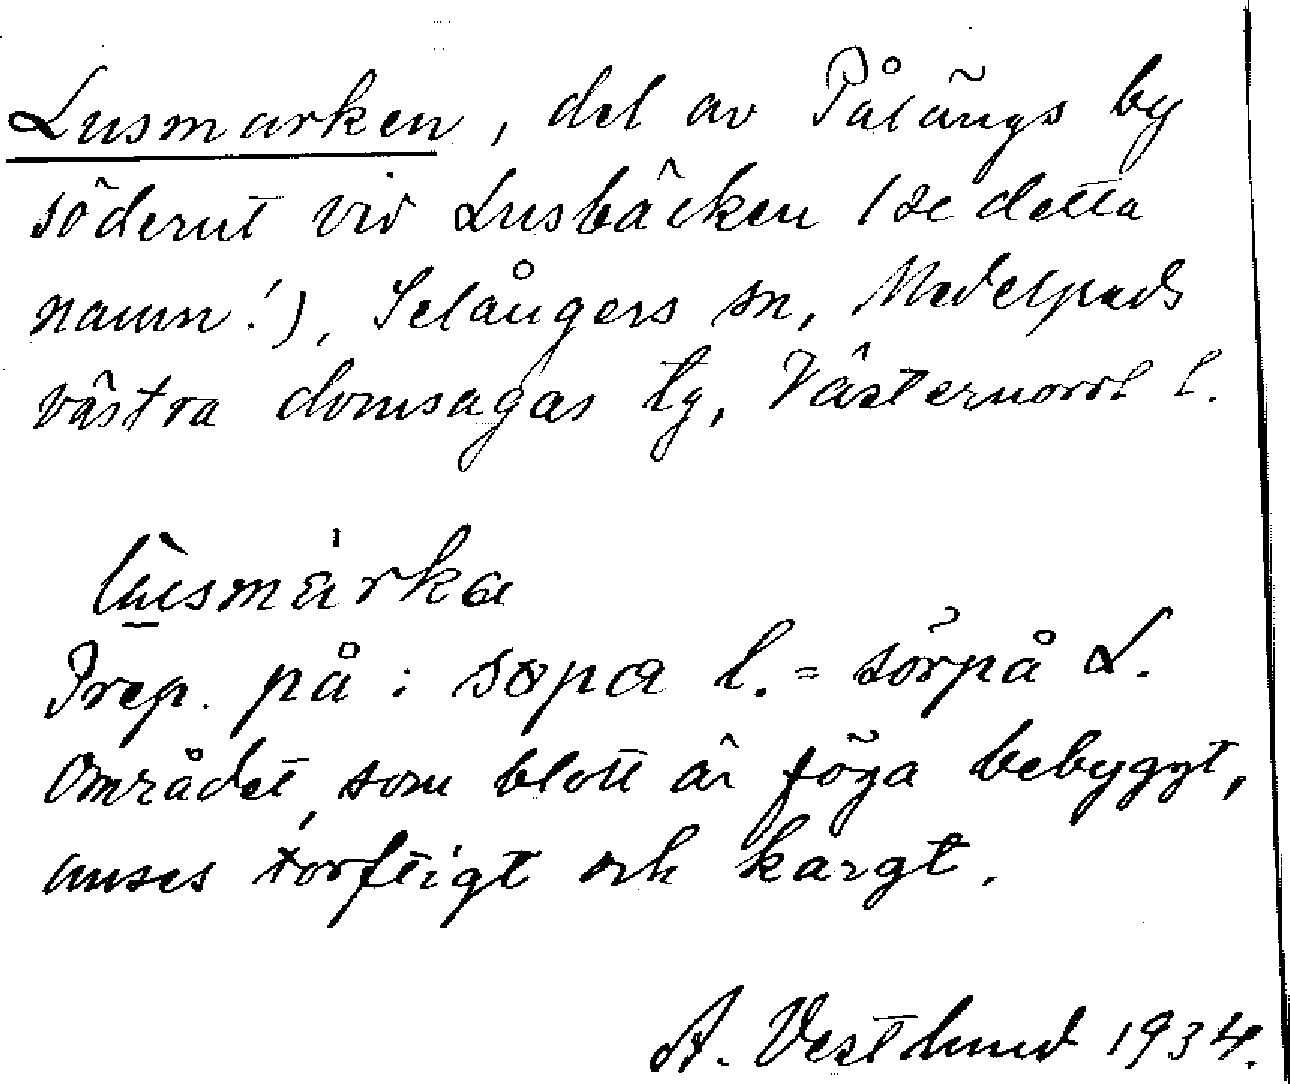 Lusmarken, del av Påläng​s by
söderut vid Lusbäcken (se detta
namn!), Selångers sn, Medelpads
västra domsagas tg, Västernorrl l.
lùsmárka
Prep. på: søpa l. = sörpå L.
Området, som blott är föga bebyggt,
anses torftigt och kargt.
A. Vestlund 1934.